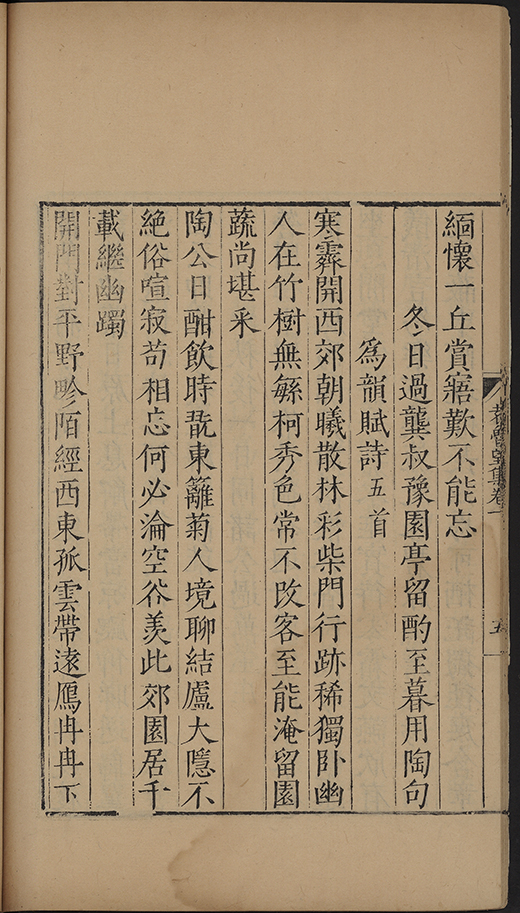 緬懷一丘賞寤歎不能忘
冬日過龔叔豫園亭留酌至暮用陶句
爲韻賦詩五首
寒霽開西郊朝曦散林彩柴門行跡稀獨卧幽
人在竹樹無繇柯秀色常不改客至能淹留園
蔬尚堪采
陶公日酣飲時翫東籬菊人境聊結廬大隱不
絕俗喧寂苟相忘何必淪空谷羡此郊園居千
載繼幽躅
開門對平野畛陌經西東孤雲帶遠鴈冉冉下
集卷一
五